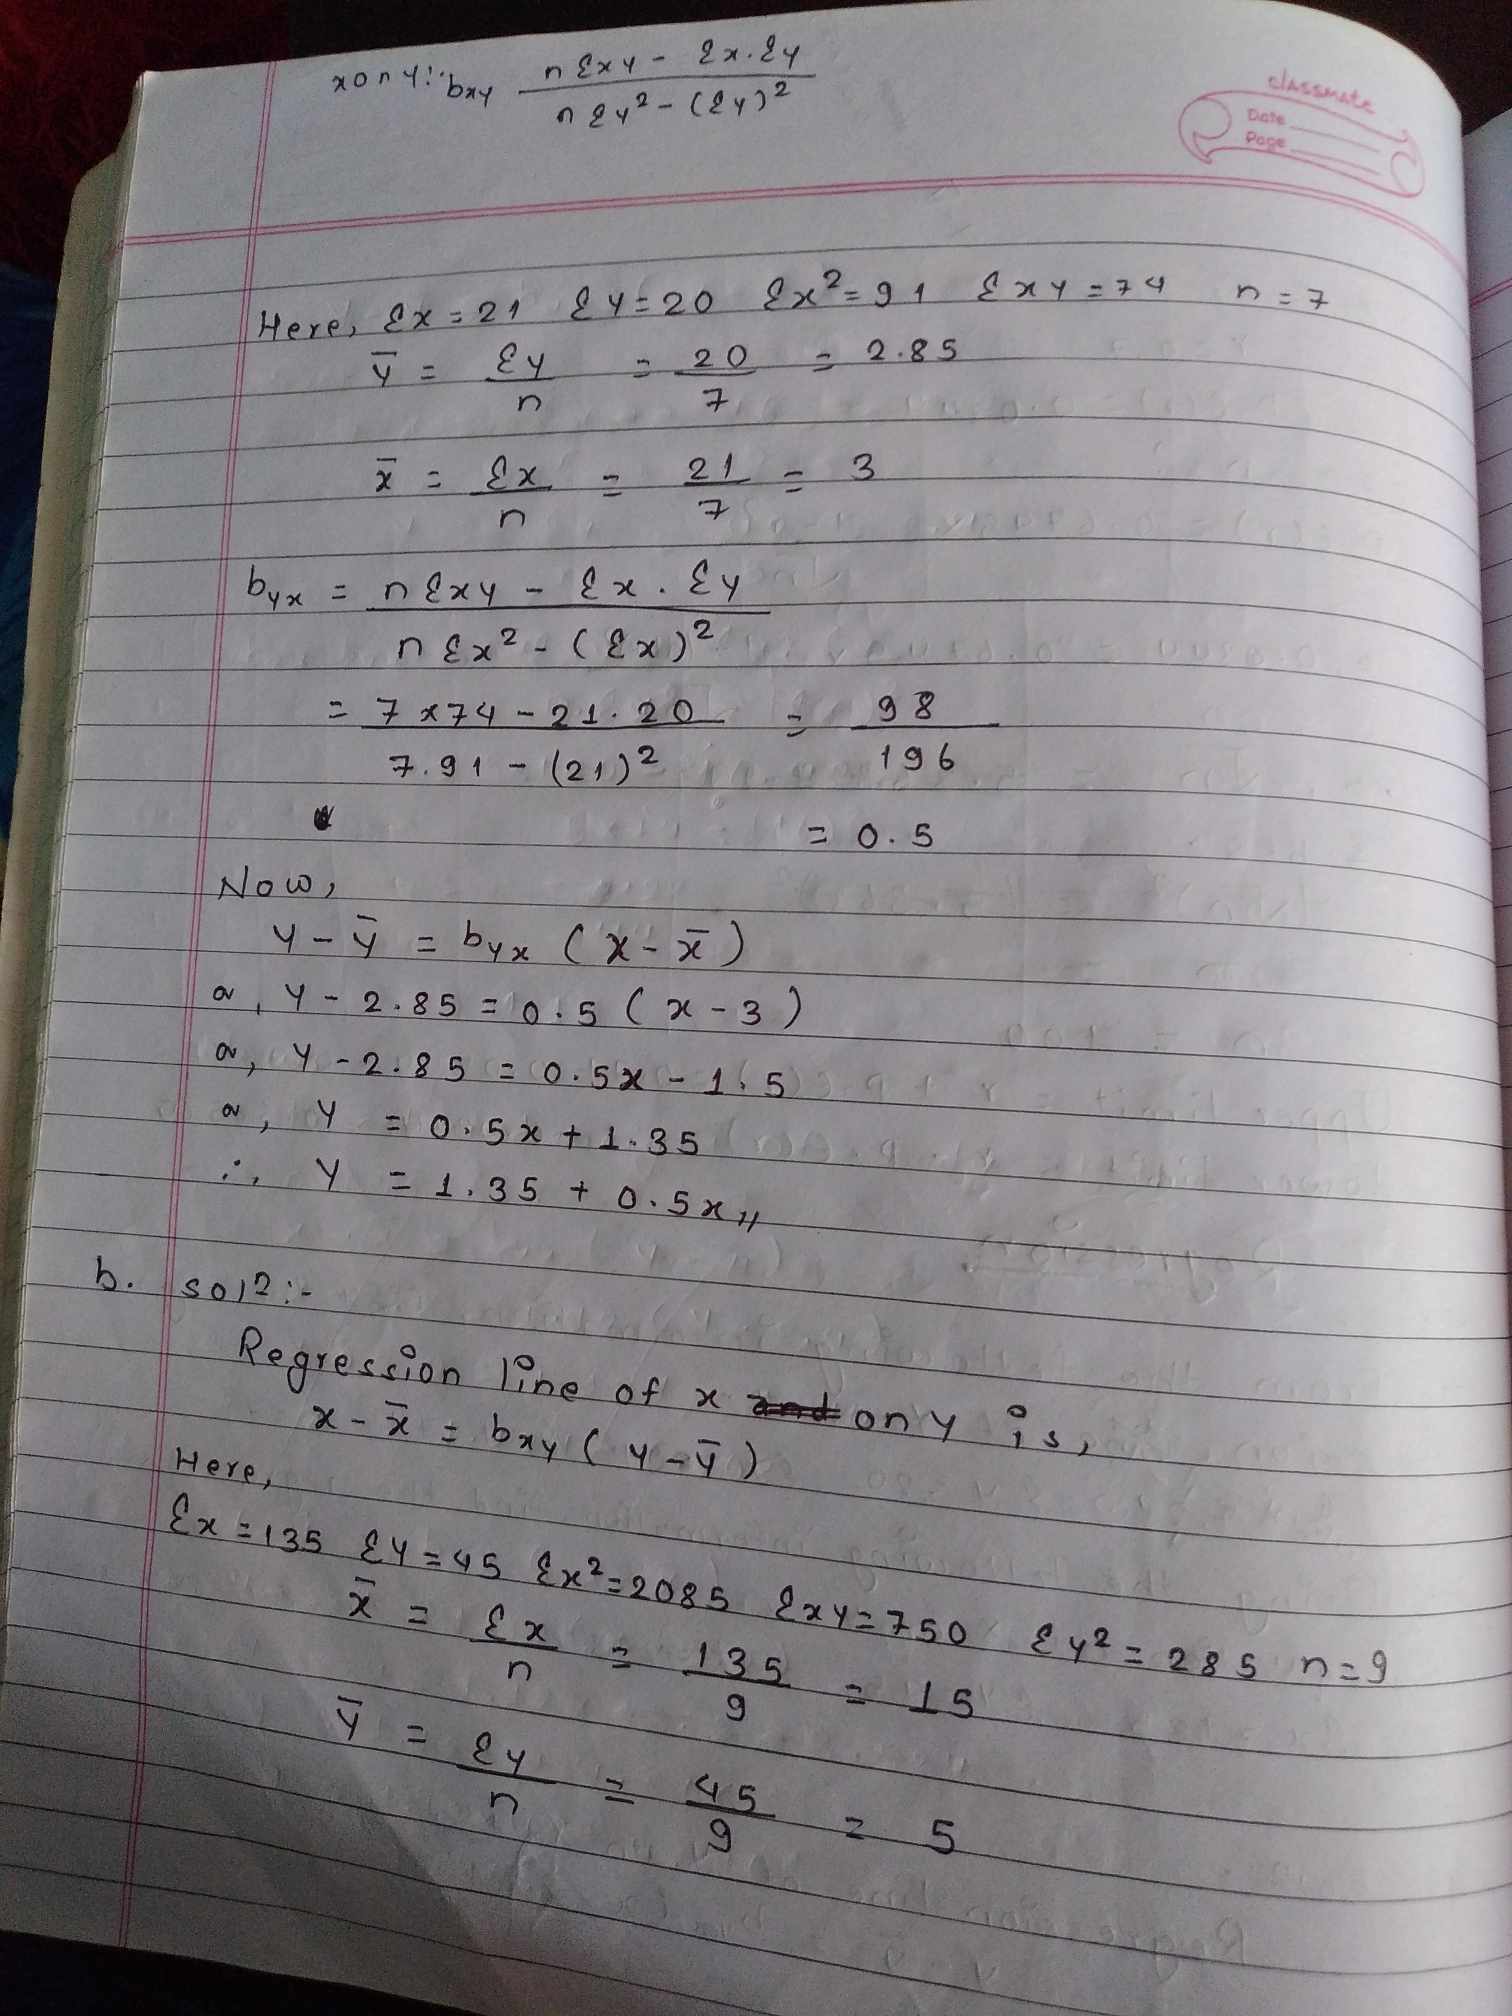 x on y:- bxy nΣxy - Σx.Σy / nΣy² - (Σy)²
classmate
Date
Page
Here, Σx = 21 Σy = 20 Σx² = 91 Σxy = 74 n = 7
ȳ = Σy / n = 20 / 7 = 2.85
x̄ = Σx / n = 21 / 7 = 3
byx = nΣxy - Σx . Σy / nΣx² - (Σx)²
= 7 x 74 - 21 . 20 / 7.91 - (21)² = 98 / 196
= 0.5
Now,
y - ȳ = byx (x - x̄)
or, y - 2.85 = 0.5 (x - 3)
or, y - 2.85 = 0.5x - 1.5
or, y = 0.5x + 1.35
∴ y = 1.35 + 0.5x,,
b. solⁿ:-
Regression line of x on y is,
x - x̄ = bxy (y - ȳ)
Here,
Σx = 135 Σy = 45 Σx² = 2085 Σxy = 750 Σy² = 285 n = 9
x̄ = Σx / n = 135 / 9 = 15
ȳ = Σy / n = 45 / 9 = 5